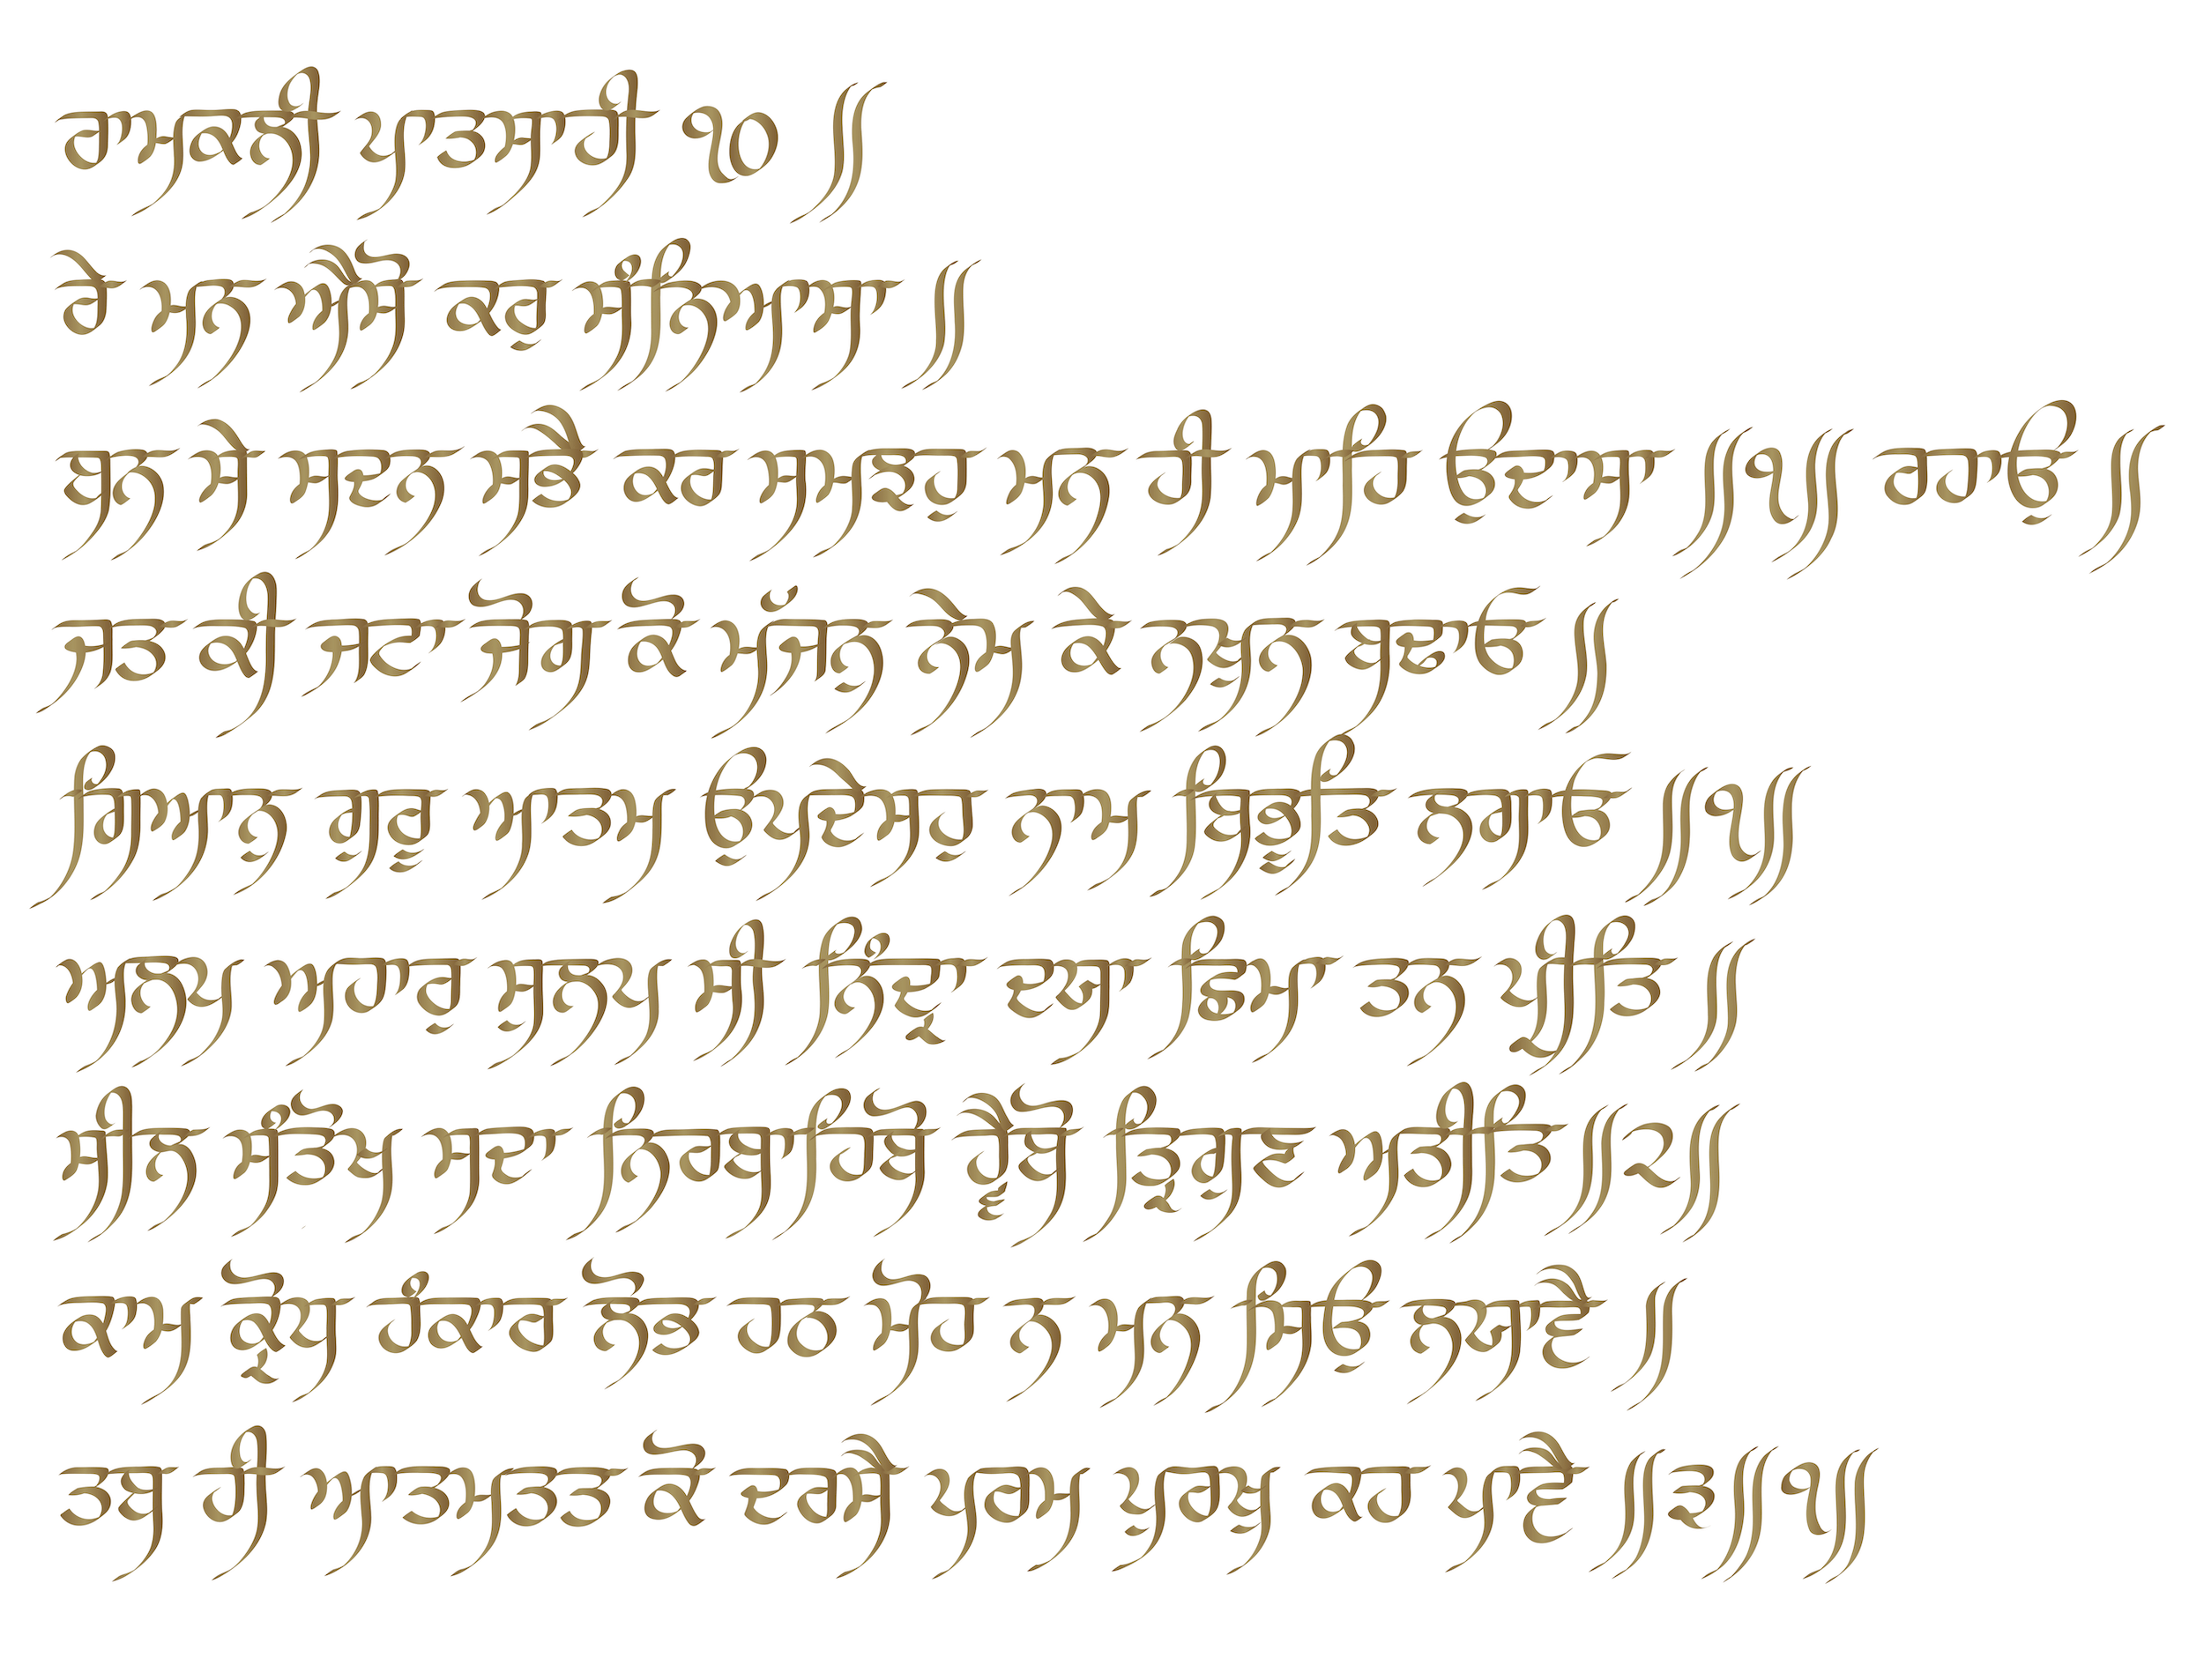 ਰਾਮਕਲੀ ਪਾਤਸਾਹੀ ੧੦ ॥
ਰੇ ਮਨ ਐਸੋ ਕਰੁ ਸੰਨਿਆਸਾ ॥
ਬਨ ਸੇ ਸਦਨ ਸਭੈ ਕਰ ਸਮਝਹੁ ਮਨ ਹੀ ਮਾਹਿ ਉਦਾਸਾ ॥੧॥ ਰਹਾਉ ॥
ਜਤ ਕੀ ਜਟਾ ਜੋਗ ਕੋ ਮੱਜਨੁ ਨੇਮ ਕੇ ਨਖੁਨ ਬਢਾਓ ॥
ਗਿਆਨੁ ਗੁਰੂ ਆਤਮ ਉਪਦੇਸਹ ਨਾਮ ਬਿਭੂਤਿ ਲਗਾਓ ॥੧॥
ਅਲਪ ਅਹਾਰੁ ਸੁਲਪ ਸੀ ਨਿੰਦ੍ਰਾ ਦਯਾ ਛਿਮਾ ਤਨ ਪ੍ਰੀਤਿ ॥
ਸੀਲ ਸੰਤੋਖ ਸਦਾ ਨਿਰਬਾਹਿਬੋ ਹ੍ਵੈਬੋ ਤ੍ਰਿਗੁਣ ਅਤੀਤਿ ॥੨॥
ਕਾਮ ਕ੍ਰੋਧ ਹੰਕਾਰ ਲੋਭ ਹਠ ਮੋਹ ਨ ਮਨ ਸਿਉ ਲਯਾਵੈ ॥
ਤਬ ਹੀ ਆਤਮ ਤਤ ਕੋ ਦਰਸੈ ਪਰਮ ਪੁਰਖੁ ਕਹ ਪਾਵੈ ॥੩॥੧॥